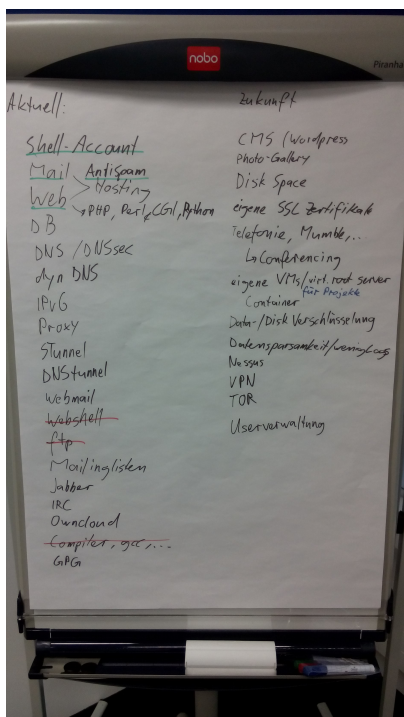 nobo
Piranha
Aktuell:
Shell-Account
Mail Antispam
Hosting
Web
PHP, Perl, CGI, Python
DB
DNS / DNSsec
dyn DNS
IPv6
Proxy
STunnel
DNStunnel
Webmail
Webshell
ftp
Mailinglisten
Jabber
IRC
Owncloud
Compiler, gcc, ...
GPG
Zukunft
CMS / Wordpress
Photo-Gallery
Disk Space
eigene SSL Zertifikate
Telefonie, Mumble, ..
Conferencing
eigene VMs / virt. root server
für Projekte
Container
Data-/Disk Verschlüsselung
Datensparsamkeit / wenig Logs
Nessus
VPN
TOR
Userverwaltung